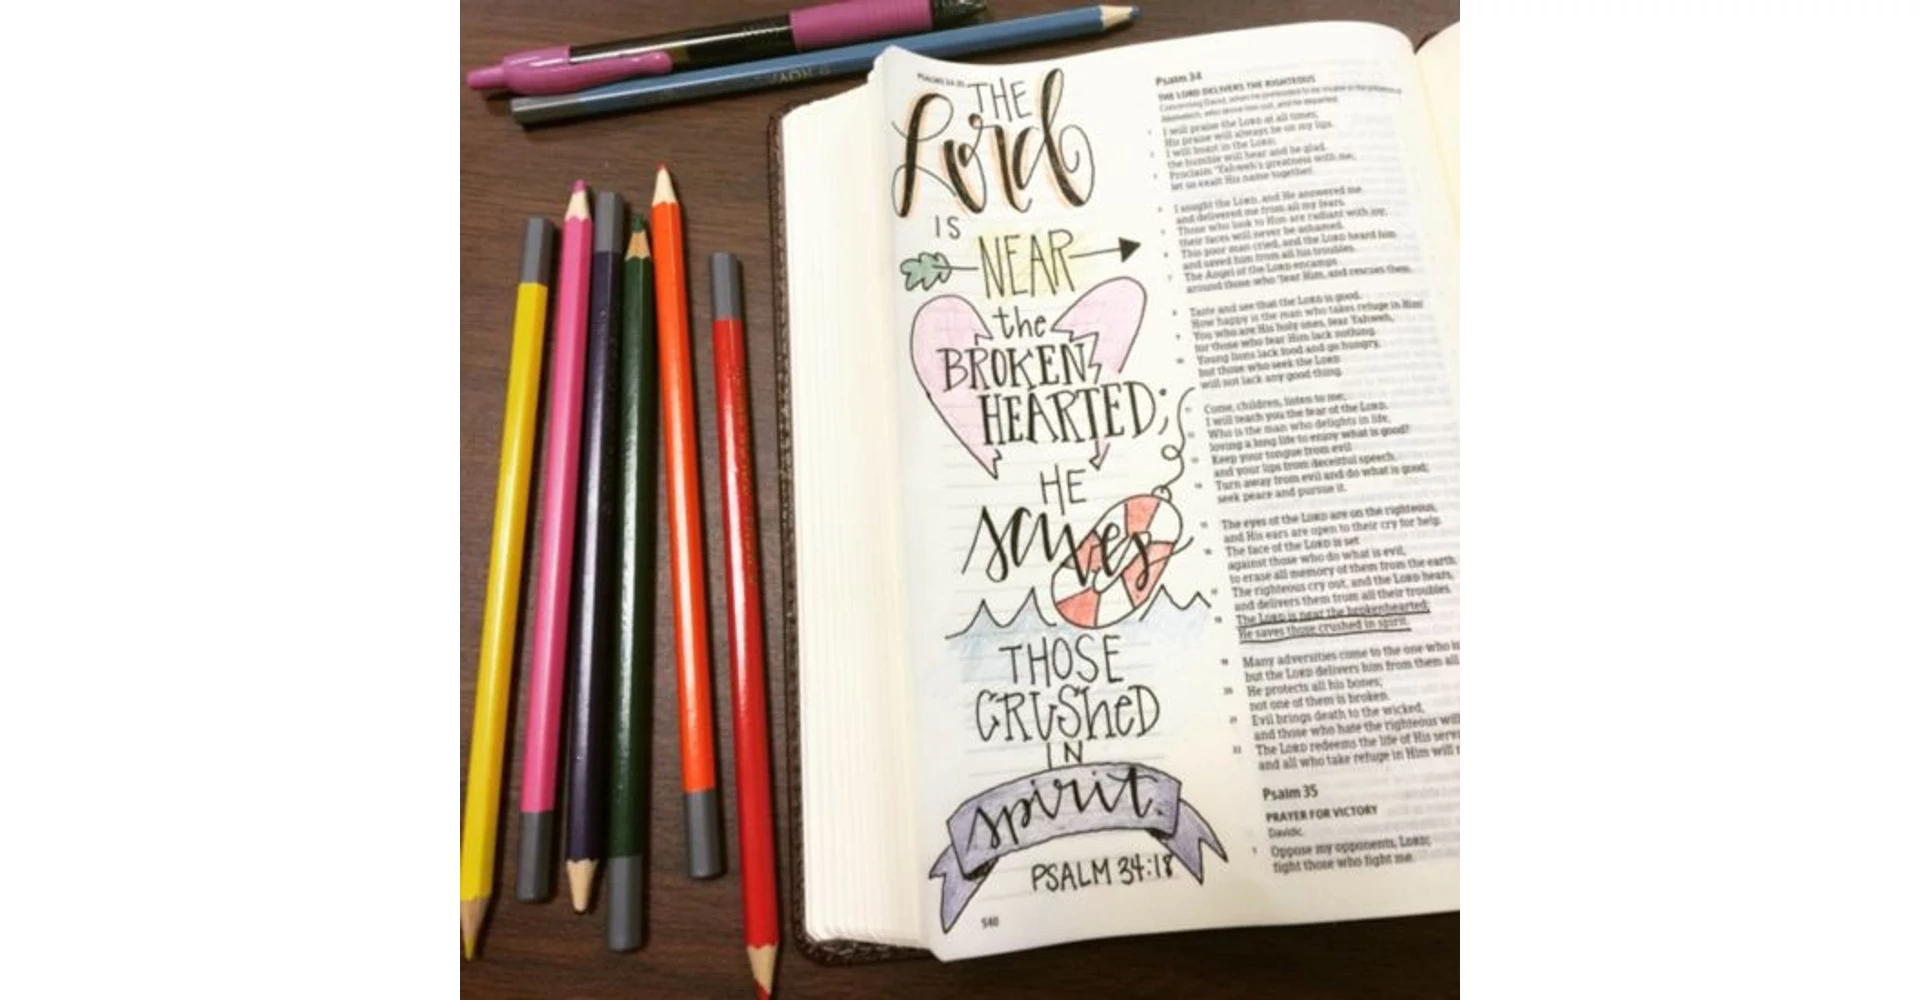 PSALMS 34:35
THE
Lord
IS
NEAR
the
BROKEN
HEARTED;
HE
saves
THOSE
CRUSHED
IN
spirit.
PSALM 34:18
540
Psalm 34
THE LORD DELIVERS THE RIGHTEOUS
Concerning David, when he pretended to be insane in the presence of
Abimelech, who drove him out, and he departed.
1 I will praise the LORD at all times;
His praise will always be on my lips.
2 I will boast in the LORD;
the humble will hear and be glad.
3 Proclaim Yahweh's greatness with me;
let us exalt His name together.
4 I sought the LORD, and He answered me
and delivered me from all my fears.
5 Those who look to Him are radiant with joy;
their faces will never be ashamed.
6 This poor man cried, and the LORD heard him
and saved him from all his troubles.
7 The Angel of the LORD encamps
around those who fear Him, and rescues them.
8 Taste and see that the LORD is good.
How happy is the man who takes refuge in Him!
9 You who are His holy ones, fear Yahweh,
for those who fear Him lack nothing.
10 Young lions lack food and go hungry,
but those who seek the LORD
will not lack any good thing.
11 Come, children, listen to me;
I will teach you the fear of the LORD.
12 Who is the man who delights in life,
loving a long life to enjoy what is good?
13 Keep your tongue from evil
and your lips from deceitful speech.
14 Turn away from evil and do what is good;
seek peace and pursue it.
15 The eyes of the LORD are on the righteous,
and His ears are open to their cry for help.
16 The face of the LORD is set
against those who do what is evil,
to erase all memory of them from the earth.
17 The righteous cry out, and the LORD hears,
and delivers them from all their troubles.
18 The LORD is near the brokenhearted;
He saves those crushed in spirit.
19 Many adversities come to the one who is
but the LORD delivers him from them all
20 He protects all his bones;
not one of them is broken.
21 Evil brings death to the wicked,
and those who hate the righteous will
22 The LORD redeems the life of His serv
and all who take refuge in Him will
Psalm 35
PRAYER FOR VICTORY
Davidic.
1 Oppose my opponents, LORD;
fight those who fight me.